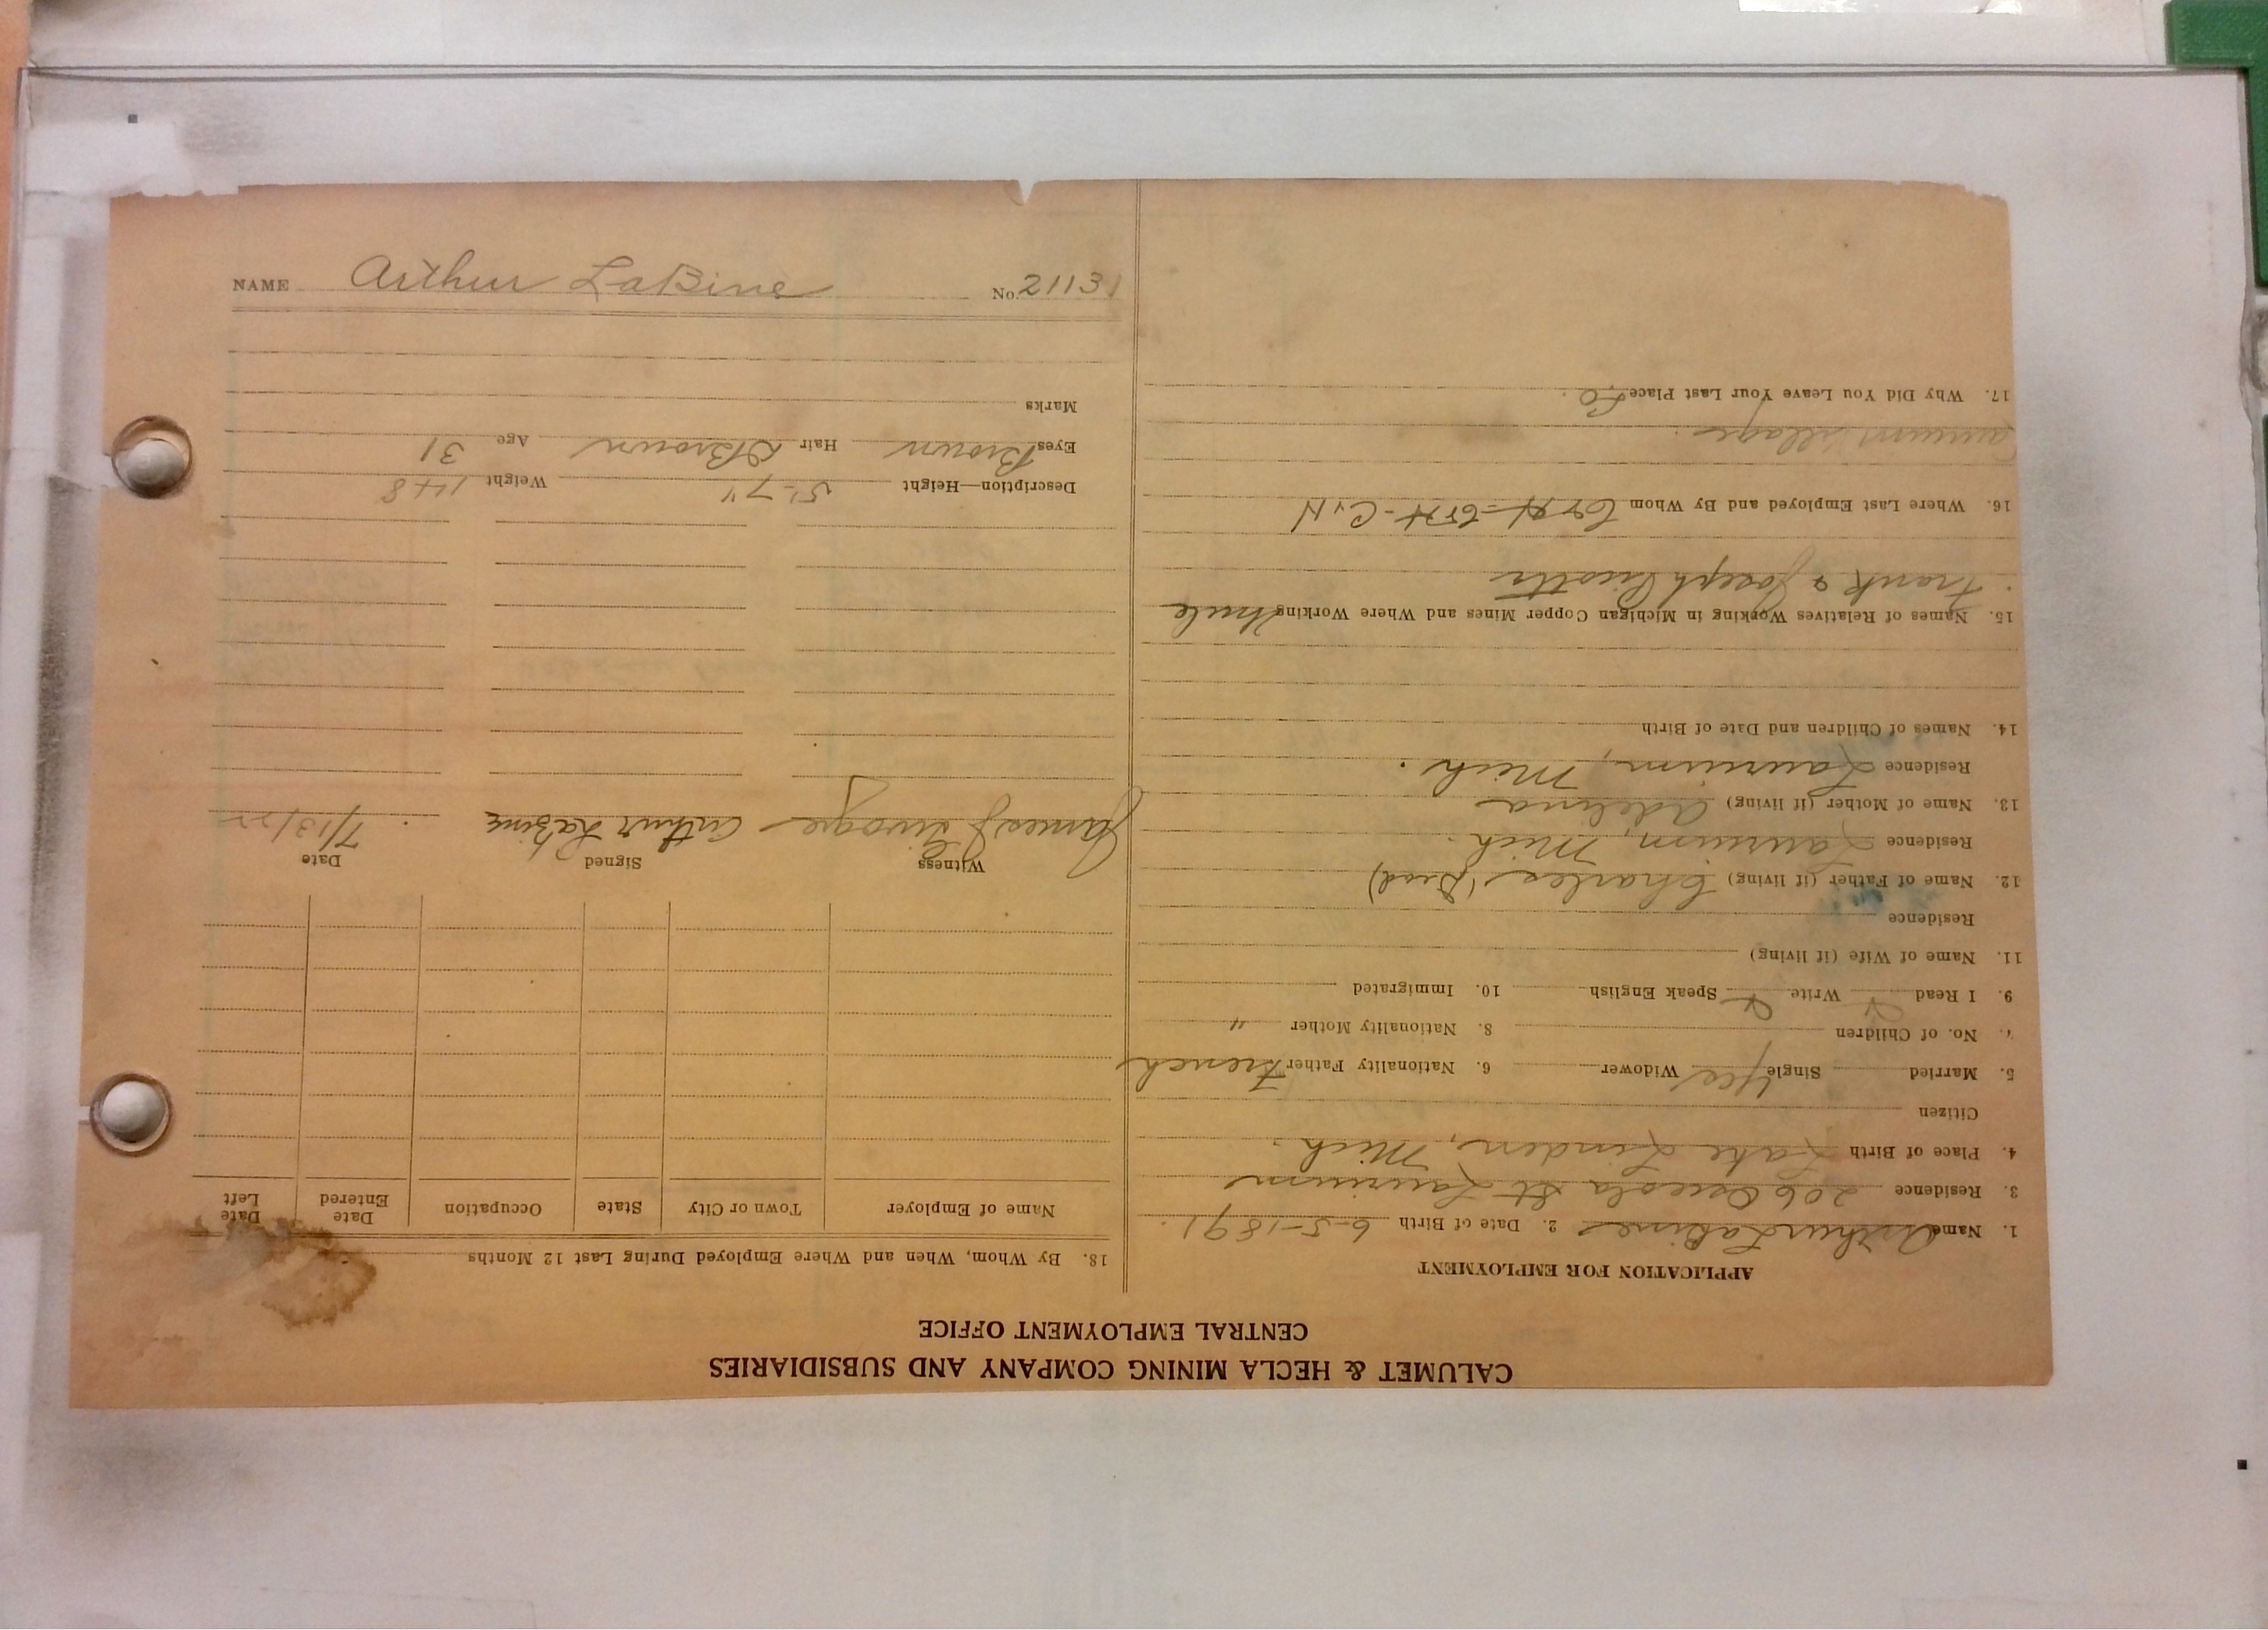 CALUMET & HECLA MINING COMPANY AND SUBSIDIARIES
CENTRAL EMPLOYMENT OFFICE
APPLICATION FOR EMPLOYMENT
1. Name Arthur LaBine 2. Date of Birth 6-5-1891.
3. Residence 206 Osceola St Laurium
4. Place of Birth Lake Linden, Mich.
Citizen
5. Married Single Yes Widower 6. Nationality Father French
7. No. of Children 8. Nationality Mother "
9. I Read Write Speak English 10. Immigrated
11. Name of Wife (if living)
Residence
12. Name of Father (if living) Charles (Dead)
Residence Laurium, Mich.
13. Name of Mother (if living) Adelina
Residence Laurium, Mich.
14. Names of Children and Date of Birth
15. Names of Relatives Working in Michigan Copper Mines and Where Working Uncle
Frank & Joseph
16. Where Last Employed and By Whom C&H
Laurium Village.
17. Why Did You Leave Your Last Place
18. By Whom, When and Where Employed During Last 12 Months
Name of Employer Town or City State Occupation Date Entered Date Left
Witness Signed Date
James Arthur LaBine 7/13/22
Description—Height 5'-7" Weight 148
Eyes Brown Hair Brown Age 31
Marks
NAME Arthur LaBine No. 21131